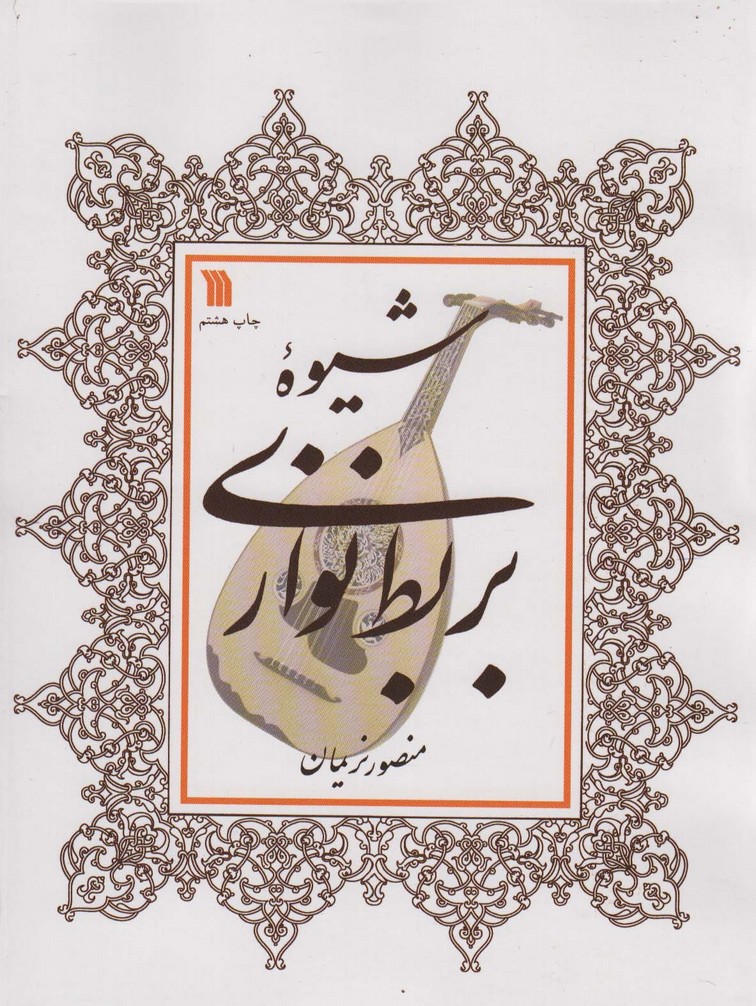 چاپ هشتم
شیوهٔ
بربط نوازی
منصور نریمان